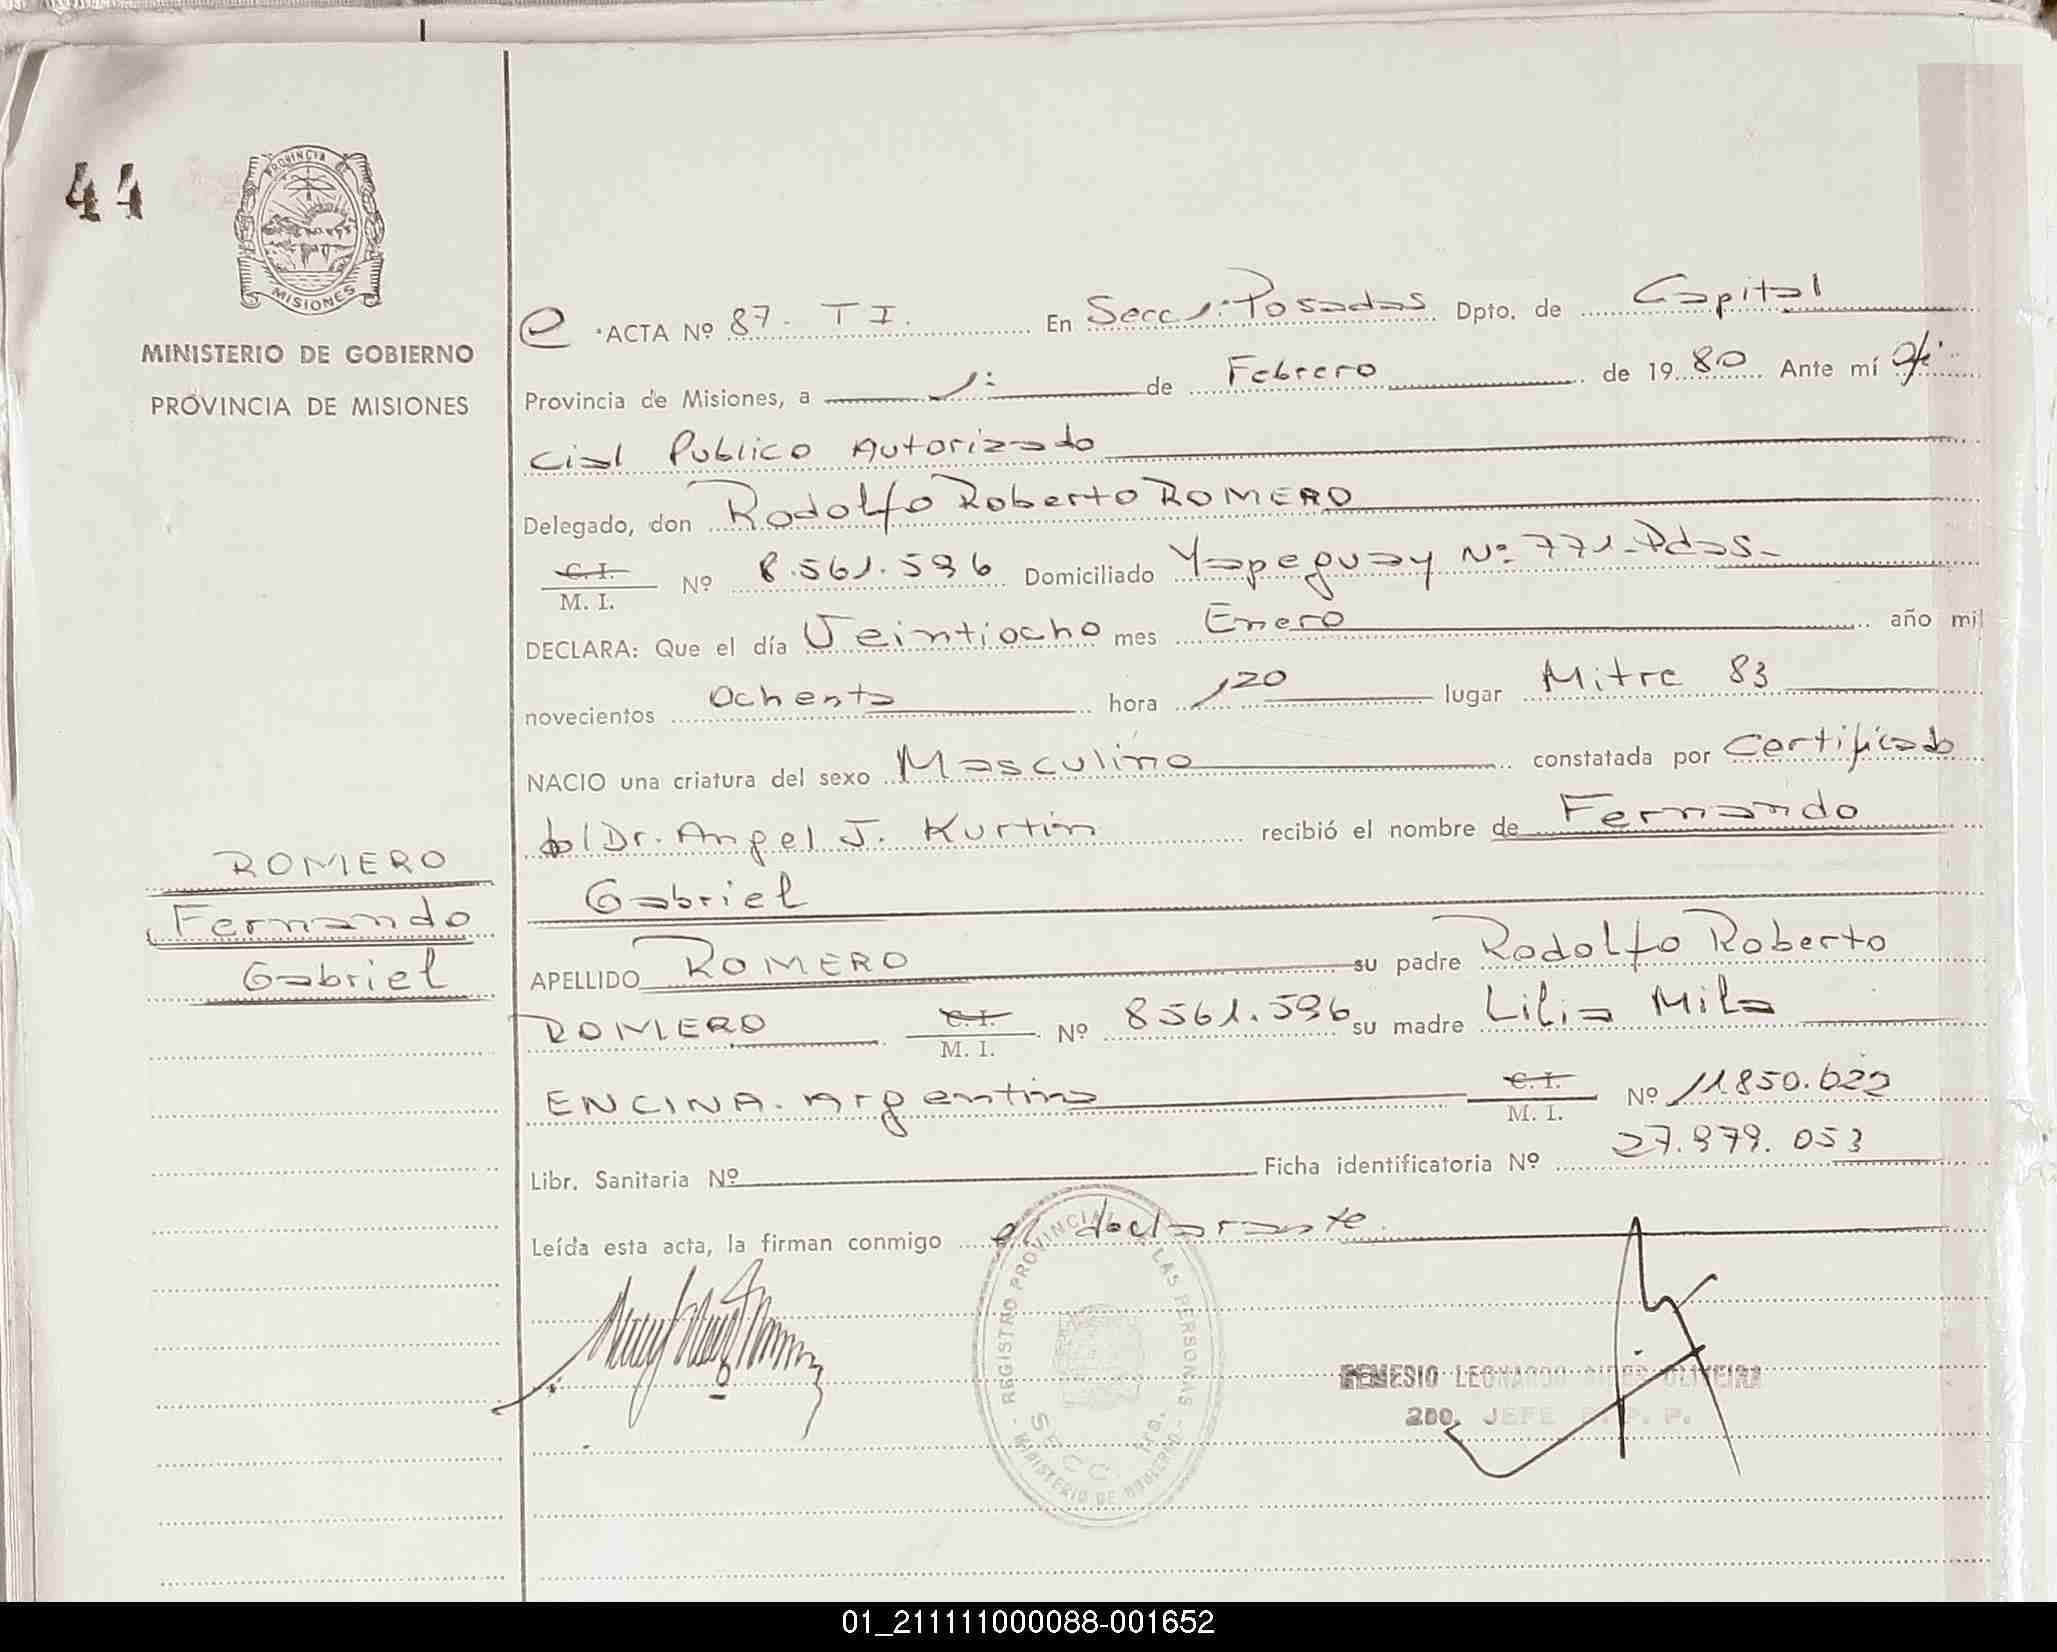 44
PROVINCIA
MISIONES
MINISTERIO DE GOBIERNO
PROVINCIA DE MISIONES
ACTA Nº 87. T I. En Secc 1: Posadas Dpto. de Capital
Provincia de Misiones, a 1: de Febrero de 1980 Ante mí Ofi
cial Publico Autorizado
Delegado, don Rodolfo Roberto ROMERO
C. I.
M. I. Nº 8.561.596 Domiciliado Yapeguay Nº 771-Pdas-
DECLARA: Que el día Veintiocho mes Enero año mil
novecientos Ochenta hora 120 lugar Mitre 83
NACIO una criatura del sexo Masculino constatada por Certificado
del Dr. Angel J. Kurtin recibió el nombre de Fernando
Gabriel
APELLIDO ROMERO su padre Rodolfo Roberto
ROMERO C. I. M. I. Nº 8561.596 su madre Lilia Mila
ENCINA. Argentina C. I. M. I. Nº 11.850.622
Libr. Sanitaria Nº Ficha identificatoria Nº 27.979.053
Leída esta acta, la firman conmigo el declarante.
ROMERO
Fernando
Gabriel
REGISTRO PROVINCIAL DE LAS PERSONAS
SECC. 1ra.
MINISTERIO DE GOBIERNO
LEONARDO OLIVEIRA
2do. JEFE R. P. P.
01_211111000088-001652